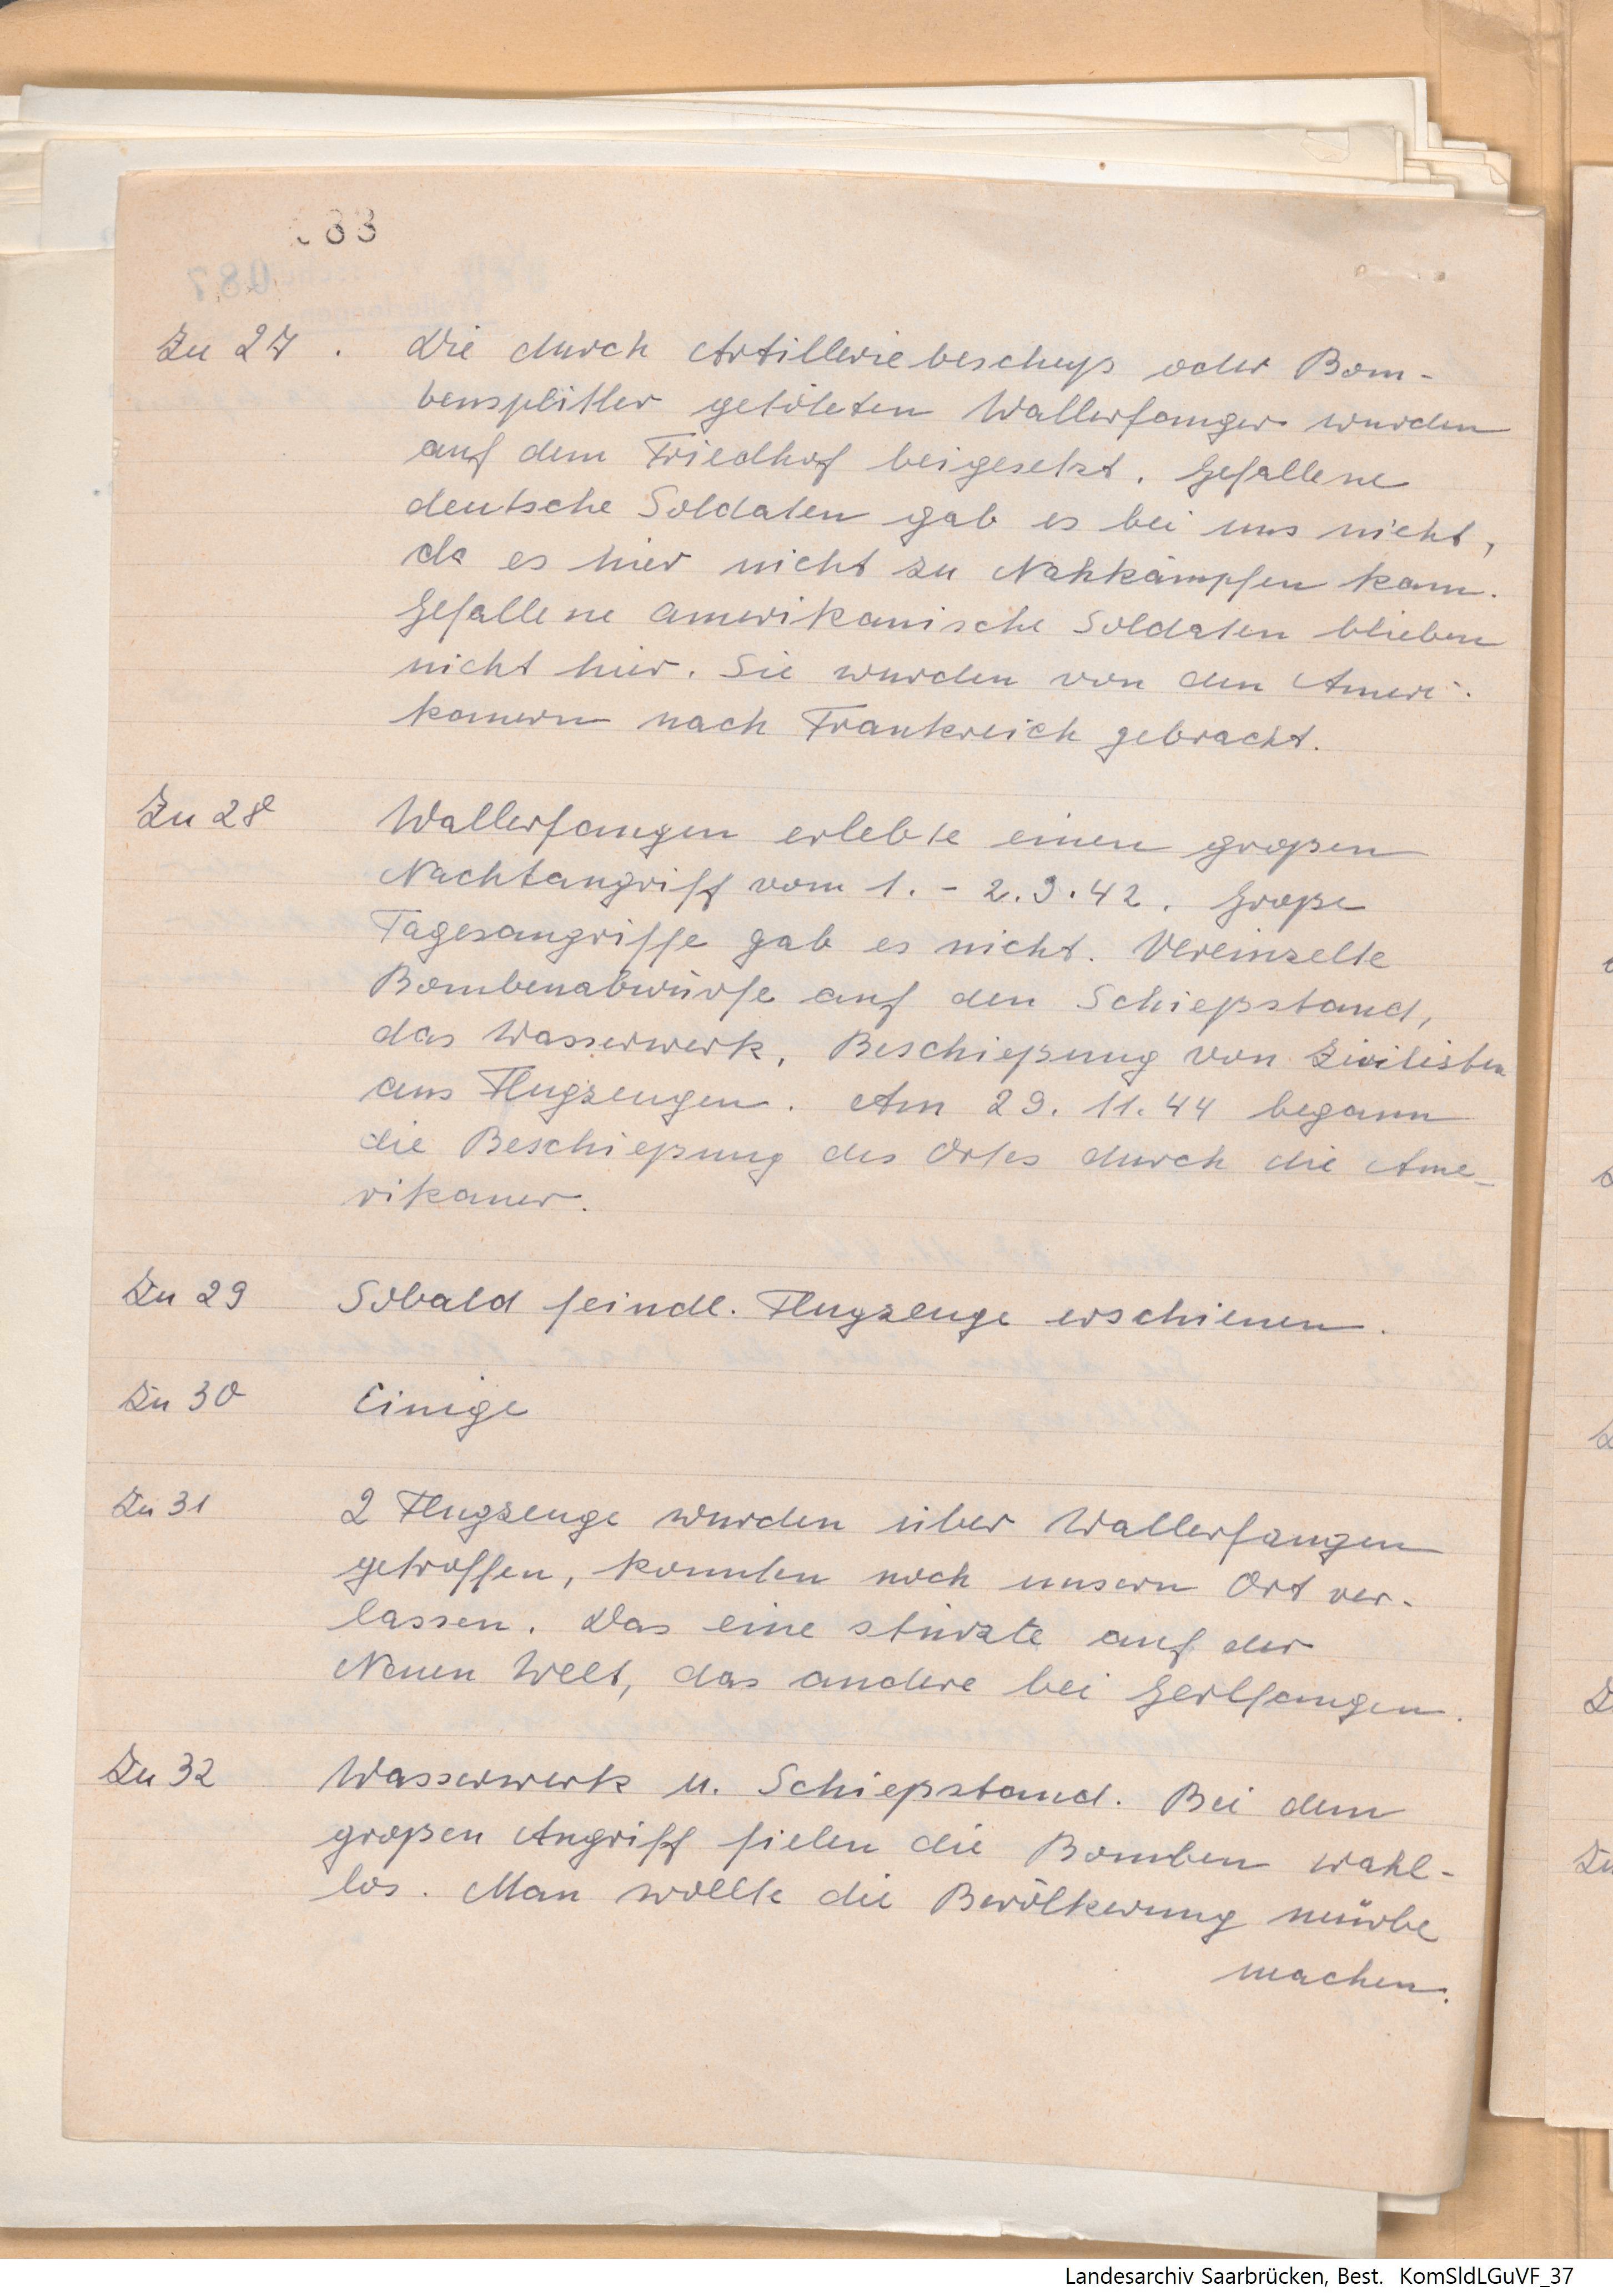 88
087
Zu 27. Die durch Artilleriebeschuß oder Bom-
bensplitter getöteten Wallerfanger wurden
auf dem Friedhof beigesetzt. Gefallene
deutsche Soldaten gab es bei uns nicht,
da es hier nicht zu Nahkämpfen kam.
Gefallene amerikanische Soldaten blieben
nicht hier. Sie wurden von den Ameri-
kanern nach Frankreich gebracht.
Zu 28 Wallerfangen erlebte einen großen
Nachtangriff vom 1. - 2.9.42. Große
Tagesangriffe gab es nicht. Vereinzelte
Bombenabwürfe auf den Schießstand,
das Wasserwerk, Beschießung von Zivilisten
aus Flugzeugen. Am 29.11.44 begann
die Beschießung des Ortes durch die Ame-
rikaner.
Zu 29 Sobald feindl. Flugzeuge erschienen.
Zu 30 Einige
Zu 31 2 Flugzeuge wurden über Wallerfangen
getroffen, konnten noch unsern Ort ver-
lassen. Das eine stürzte auf der
Neuen Welt, das andere bei Gerlfangen.
Zu 32 Wasserwerk u. Schießstand. Bei dem
großen Angriff fielen die Bomben wahl-
los. Man wollte die Bevölkerung mürbe
machen.
Landesarchiv Saarbrücken, Best. KomSldLGuVF_37